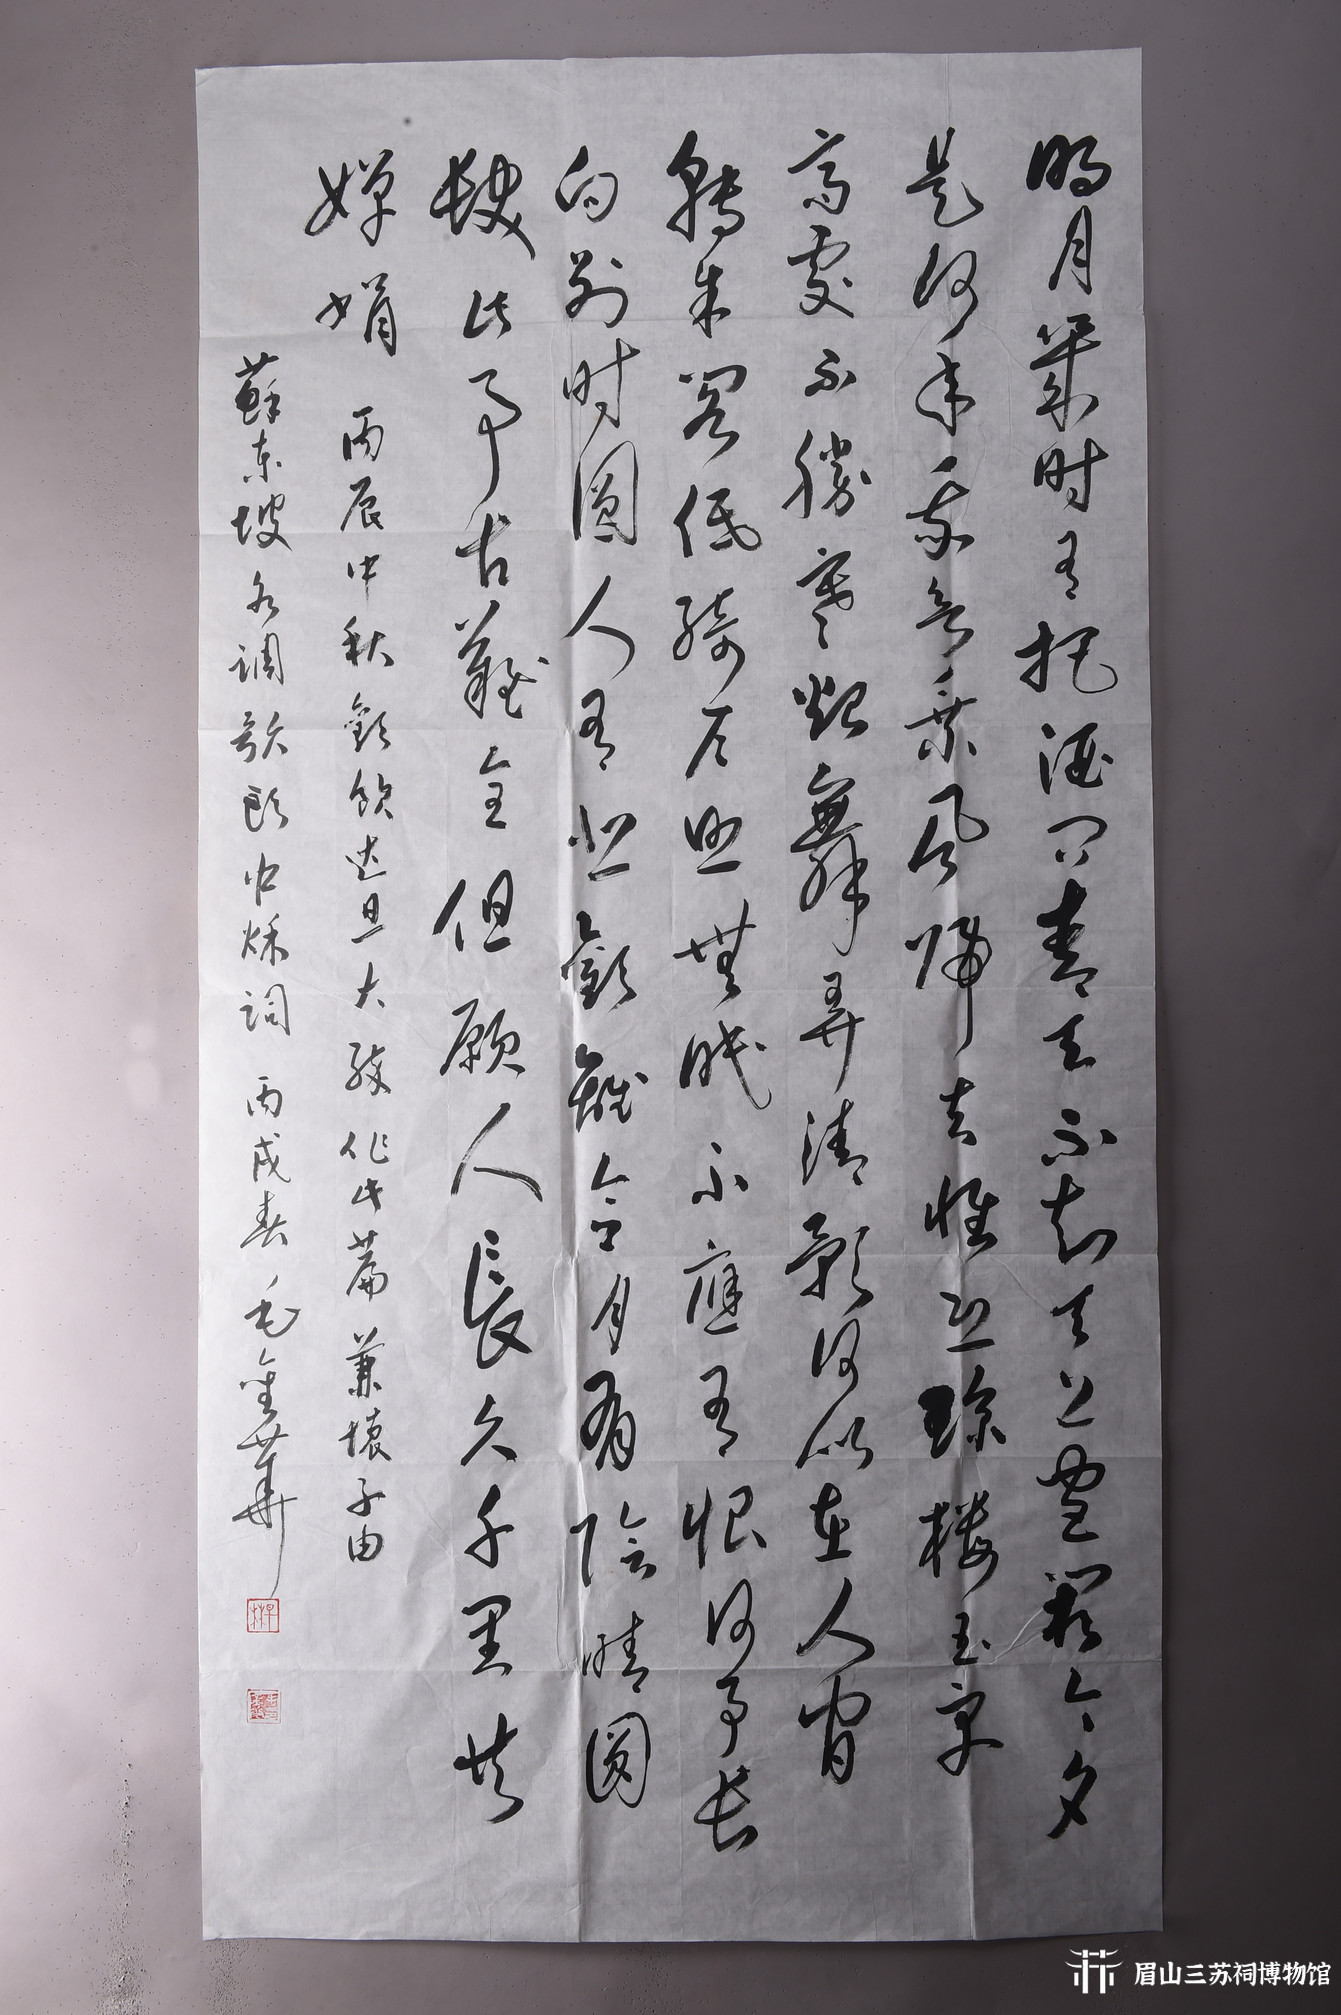 明月幾时有把酒问青天不知天上宫阙今夕
是何年我欲乘风归去惟恐琼楼玉宇
高處不勝寒起舞弄清影何似在人间
转朱阁低绮户照無眠不應有恨何事长
向别时圆人有悲歡離合月有陰晴圆
缺此事古難全但願人長久千里共
嬋娟 丙辰中秋歡飲达旦大醉作此篇兼懷子由
蘇东坡水调歌头中秋词 丙戌春 毛金華
眉山三苏祠博物馆